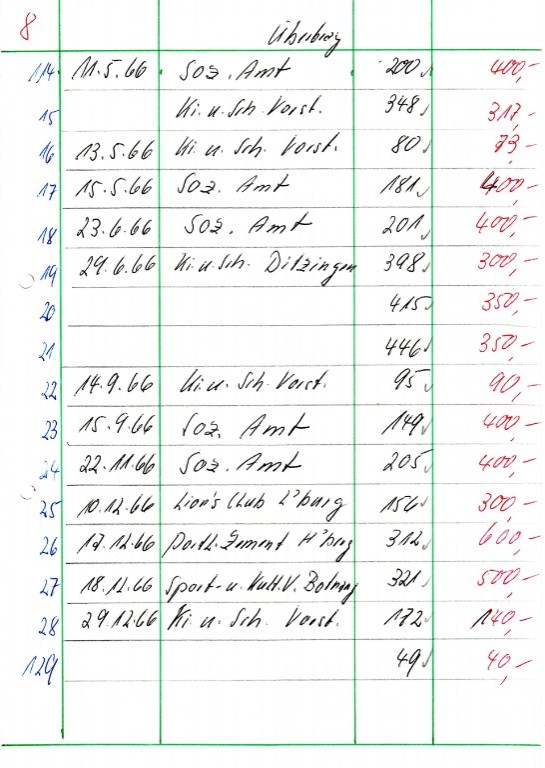 8
114 11.5.66 Soz. Amt 200 400,-
15 Ki. u. Sch. Vorst. 348 317,-
16 13.5.66 Ki. u. Sch. Vorst. 80 73,-
17 15.5.66 Soz. Amt 181 400,-
18 23.6.66 Soz. Amt 201 400,-
19 29.6.66 Ki. u. Sch. Ditzingen 398 300,-
20 415 350,-
21 446 350,-
22 14.9.66 Ki. u. Sch. Vorst. 95 90,-
23 15.9.66 Soz. Amt 149 400,-
24 22.11.66 Soz. Amt 205 400,-
25 10.12.66 Lion's Club L'burg 156 300,-
26 17.12.66 Portl. Zement H'berg 312 600,-
27 18.12.66 Sport- u. Kult. V. 321 500,-
28 29.12.66 Ki. u. Sch. Vorst. 172 140,-
129 49 40,-